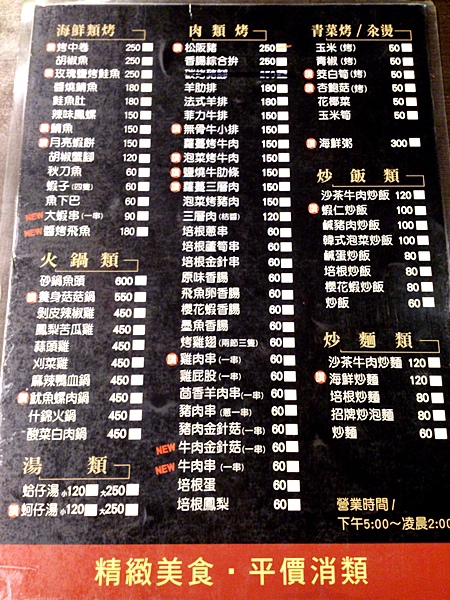 海鮮類烤
烤中卷 250
胡椒魚 250
玫瑰鹽烤鮭魚 250
醬燒鯛魚 180
鮭魚肚 180
辣味鳳螺 150
鯖魚 150
月亮蝦餅 150
胡椒蟹腳 120
秋刀魚 60
蝦子(四隻) 60
魚下巴 60
NEW 大蝦串(一串) 90
NEW 醬烤飛魚 180
火鍋類
砂鍋魚頭 600
養身菇菇鍋 550
剝皮辣椒雞 450
鳳梨苦瓜雞 450
蒜頭雞 450
刈菜雞 450
麻辣鴨血鍋 450
魷魚螺肉鍋 450
什錦火鍋 450
酸菜白肉鍋 450
湯類
蛤仔湯 小120 大250
蚵仔湯 小120 大250
肉類烤
松阪豬 250
香腸綜合拚 250
羊肋排 180
法式羊排 180
菲力牛排 150
無骨牛小排 150
蘿蔓烤牛肉 150
泡菜烤牛肉 150
鹽燒牛肋條 150
蘿蔓三層肉 150
泡菜烤豬肉 150
三層肉(桔醬) 120
培根蔥串 60
培根蘆筍串 60
培根金針串 60
原味香腸 60
飛魚卵香腸 60
櫻花蝦香腸 60
墨魚香腸 60
烤雞翅(兩節三隻) 60
雞肉串(一串) 60
雞屁股(一串) 60
茴香羊肉串(一串) 60
豬肉串(蔥一串) 60
豬肉金針菇(一串) 60
NEW 牛肉金針菇(一串) 60
NEW 牛肉串(一串) 60
培根蛋 60
培根鳳梨 60
青菜烤/汆燙
玉米(烤) 50
青椒(烤) 50
茭白筍(烤) 50
杏鮑菇(烤) 50
花椰菜 50
玉米筍 50
海鮮粥 300
炒飯類
沙茶牛肉炒飯 120
蝦仁炒飯 100
鹹豬肉炒飯 100
韓式泡菜炒飯 100
鹹蛋炒飯 80
培根炒飯 80
櫻花蝦炒飯 80
炒飯 60
炒麵類
沙茶牛肉炒麵 120
海鮮炒麵 120
培根炒麵 80
招牌炒泡麵 80
炒麵 60
營業時間/
下午5:00～凌晨2:00
精緻美食·平價消類